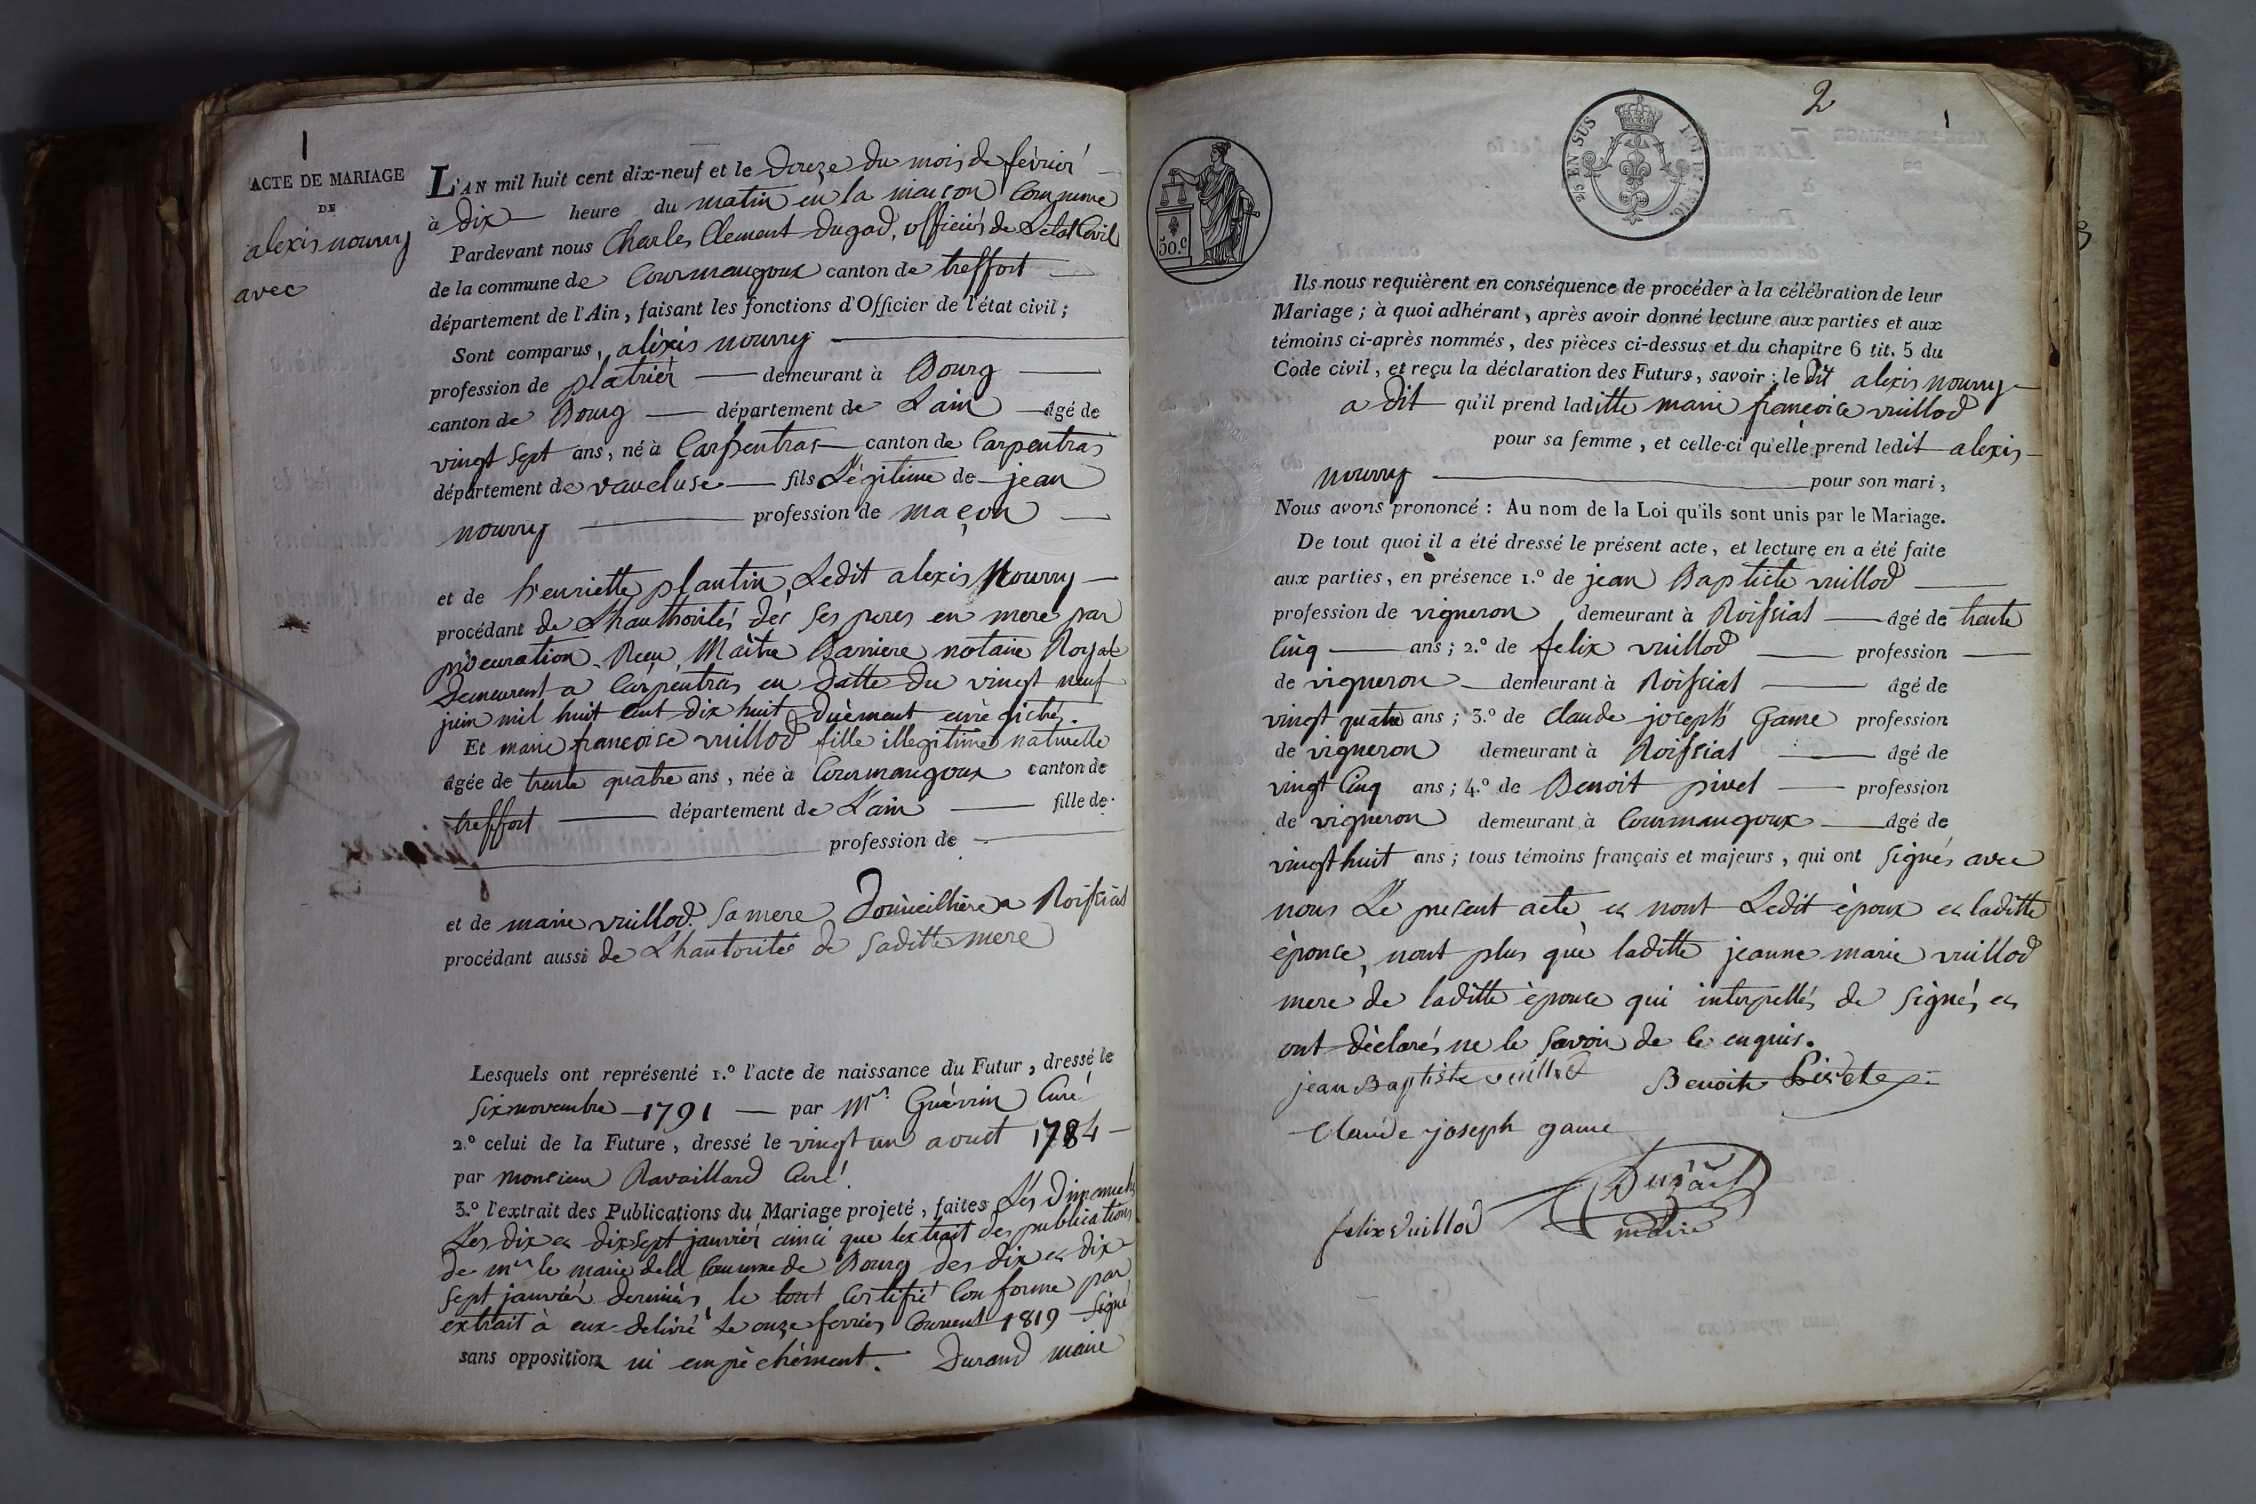 1
ACTE DE MARIAGE
DE
alexis nourry
avec
L'AN mil huit cent dix-neuf et le Douze du mois de février
à dix heure du matin en la maison commune
Pardevant nous Charles Clement dugad, officiér de L'etat Civil
de la commune de Courmangoux canton de treffort
département de l'Ain, faisant les fonctions d'Officier de l'état civil;
Sont comparus, alèxis nourry
profession de platrier demeurant à Bourg
canton de Bourg département de L'ain âgé de
vingt sept ans, né à Carpentras canton de Carpentras
département de vaucluse fils Légitime de jean
nourry profession de maçon
et de henriette plantin, Ledit alexis Nourry
procédant de L'hauthorités des ses peres en mere par
procuration Recu Maître Barriere notaire Royal
Demeurent a Carpentras en datte du vingt neuf
juin mil huit cent dix huit duèment enrègichés.
Et marie francoise vuillod fille illegitime naturelle
âgée de trente quatre ans, née à Courmangoux canton de
treffort département de L'ain fille de
profession de
et de marie vuillod. sa mere Domicilhière a Roissiat
procédant aussi de L'hautorités de saditte mere
Lesquels ont représenté 1.º l'acte de naissance du Futur, dressé le
six novembre 1791 par Mr. Guérrin Curé
2.º celui de la Future, dressé le vingt un aoust 1784
par monsieur Ravaillard Curé.
3.º l'extrait des Publications du Mariage projeté, faites Lés Dimanches
Les dix et dix sept janviér ainsi que lextrait des publications
de mr le maire de la Commune de Bourg des dix et dix
sept janviér derniérs, le tout certifié conforme par
extrait à eux delivré le onze fevriér Courrent 1819 signé
sans opposition ni empèchément. Durand maire
2
1
25 EN SUS
50.c
Ils nous requièrent en conséquence de procéder à la célébration de leur
Mariage; à quoi adhérant, après avoir donné lecture aux parties et aux
témoins ci-après nommés, des pièces ci-dessus et du chapitre 6 tit. 5 du
Code civil, et reçu la déclaration des Futurs, savoir: le dit alexis nourry
a dit qu'il prend laditte marie francoise vuillod
pour sa femme, et celle-ci qu'elle prend ledit alexis
nourry pour son mari,
Nous avons prononcé: Au nom de la Loi qu'ils sont unis par le Mariage.
De tout quoi il a été dressé le présent acte, et lecture en a été faite
aux parties, en présence 1.º de jean Baptiste vuillod
profession de vigneron demeurant à Roissiat âgé de trente
Cinq ans; 2.º de felix vuillod profession
de vigneron demeurant à Roissiat âgé de
vingt quatre ans; 3.º de Claude joseph Game profession
de vigneron demeurant à Roissiat âgé de
vingt Cinq ans; 4.º de Benoit pivet profession
de vigneron demeurant à Courmangoux âgé de
vingt huit ans; tous témoins français et majeurs, qui ont signés avec
nous Le present acte et nont Ledit èpoux et laditte
èpouse, nont plus què laditte jeanne marie vuillod
mere de laditte èpouse qui interpellés de signés et
ont dèclarés ne le savoir de le enquis.
jean Baptiste vuillod Benoit Pivet
Claude joseph game
Dugad
felix Vuillod maire